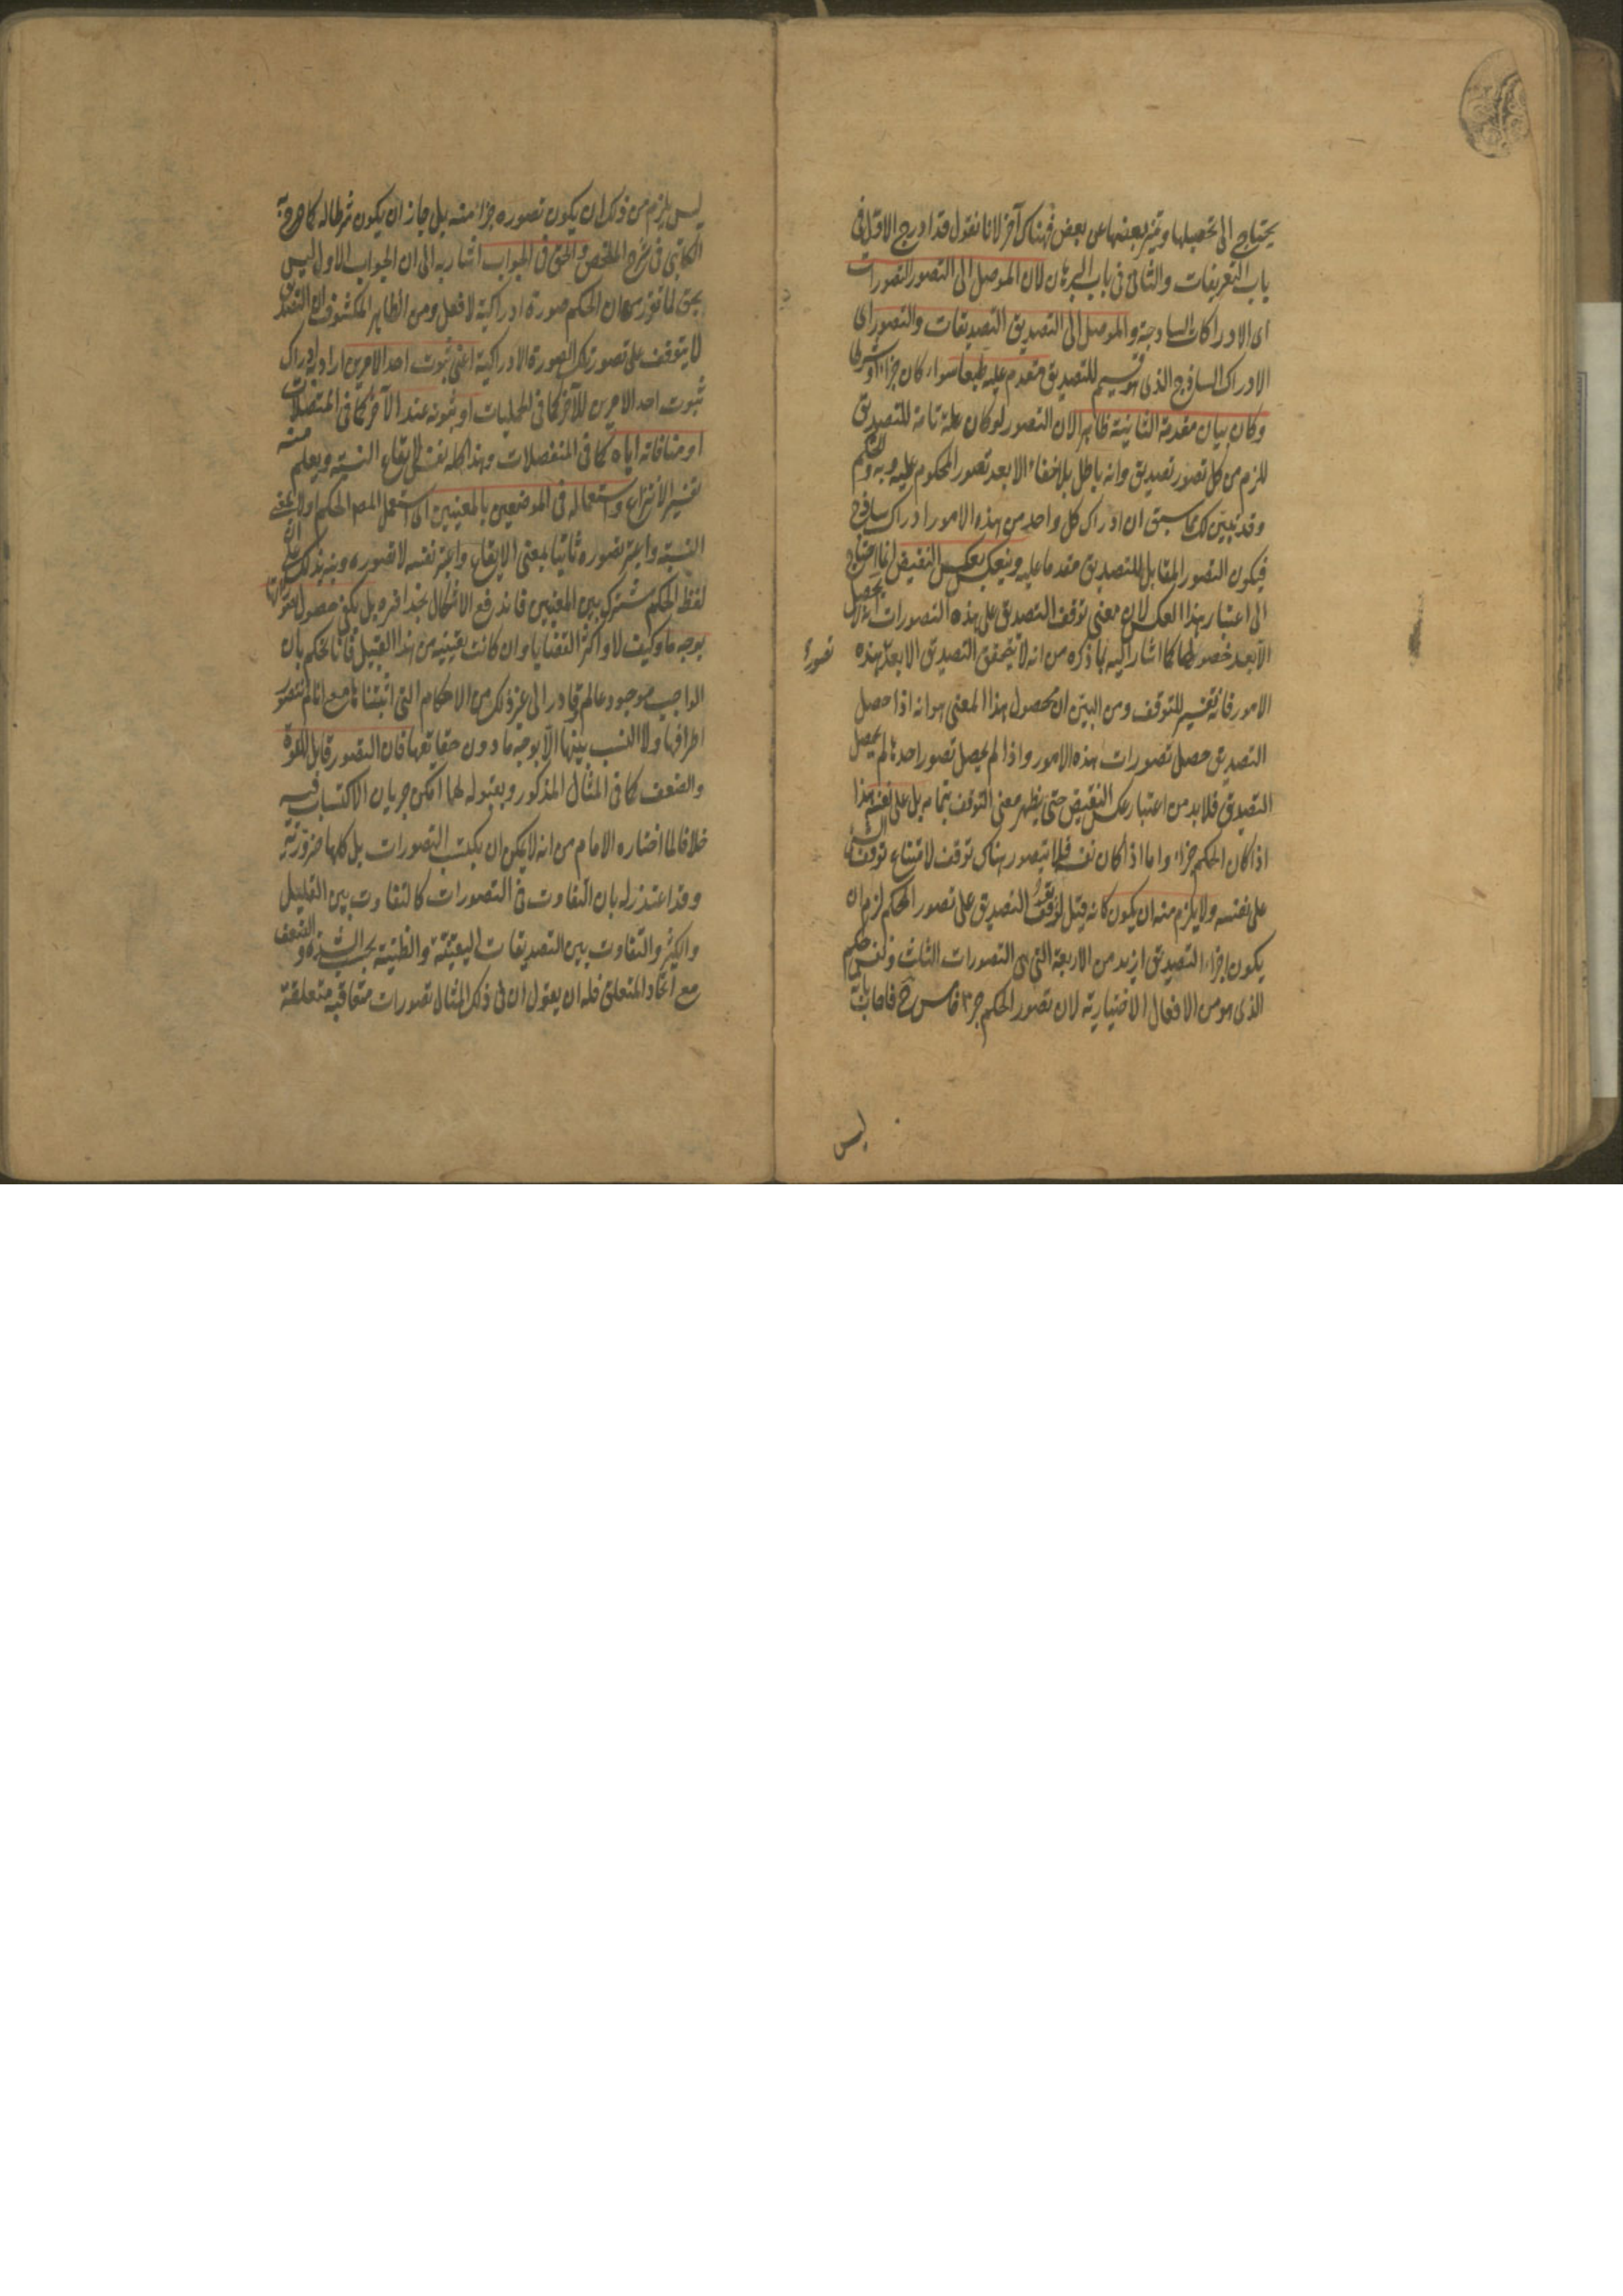 يحتاج الى تحصيلها وتميز بعضها عن بعض فهناك آخر لانا نقول قد ادرج الاول فى
باب التعريفات والثانى فى باب البرهان لان الموصل الى التصور التصورات
اى الادراكات الساذجة والموصل الى التصديق التصديقات والتصور اى
الادراك الساذج الذى هو قسيم للتصديق متقدم عليه طبعا سواء كان جزءا او شرطا
وكان بيان مقدمة الثانية ظاهرا لان التصور لو كان علة تامة للتصديق
للزم من كل تصور تصديق وانه باطل بلا خفاء الا بعد تصور المحكوم عليه وبه والحكم
وقد تبين لك مما سبق ان ادراك كل واحد من هذه الامور ادراك ساذج
فيكون التصور المقابل للتصديق مقدما عليه وينعكس بعكس النقيض انما احتاج
الى اعتبار هذا العكس لان معنى توقف التصديق على هذه التصورات انه لا يحصل
الا بعد حصولها كما اشار اليه بما ذكره من انه لا يتحقق التصديق الا بعد هذه
تصور
الامور فانه تفسير للتوقف ومن البين ان محصول هذا المعنى هو انه اذا حصل
التصديق حصل تصورات هذه الامور واذا لم يحصل تصور احدها لم يحصل
التصديق فلا بد من اعتبار عكس النقيض حتى يظهر معنى التوقف بتمامه بل على نفسه هذا
اذا كان الحكم جزءا واما اذا كان نفسه فلا يتصور هناك توقف لامتناع توقف الشئ
على نفسه ولا يلزم منه ان يكون كانه قيل لو توقف التصديق على تصور الحكم لزم ان
يكون اجزاء التصديق ازيد من الاربعة التى هى التصورات الثلث ونفس الحكم
الذى هو من الافعال الاختيارية لان تصور الحكم جزء خامس ح فاجاب بانه
ليس
ليس يلزم من ذلك ان يكون تصوره جزءا منه بل جاز ان يكون شرطا له كما صرح به
الكاتبى فى شرح الملخص والحق فى الجواب اشار به الى ان الجواب الاول ليس
بحق لما تقرر من ان الحكم صورة ادراكية لا فعل ومن الظاهر المكشوف ان التصديق
لا يتوقف على تصور تلك الصورة الادراكية اعنى ثبوت احد الامرين اراد به ادراك
ثبوت احد الامرين للآخر كما فى الحمليات او ثبوته عند الآخر كما فى المتصلات
او منافاته اياه كما فى المنفصلات وهذا كله تفسير لايقاع النسبة ويعلم منه
تفسير الانتزاع واستعماله فى الموضعين بالمعنيين اى استعمل المص الحكم اولا بمعنى
النسبة واعتبر تصوره ثانيا بمعنى الايقاع واعتبر نفسه لا تصوره ونبه بذلك على ان
لفظ الحكم مشترك بين المعنيين فاندفع الاشكال بحذافيره بل يكفى حصول تصوراتها
بوجه ما وكيف لا واكثر القضايا وان كانت يقينية من هذا القبيل فانا نحكم بان
الواجب موجود عالم قادر الى غير ذلك من الاحكام التى اثبتناها مع انا لم نتصور
اطرافها ولا النسب بينها الا بوجه ما دون حقايقها فان التصور قابل للقوة
والضعف كما فى المثال المذكور وبقبوله لهما امكن جريان الاكتساب فيه
خلافا لما اختاره الامام من انه لا يمكن ان يكتسب التصورات بل كلها ضرورية
وقد اعتذر له بان التفاوت فى التصورات كالتفاوت بين القليل
والكثير والتفاوت بين التصديقات اليقينية والظنية بحسب الشدة والضعف
مع اتحاد المتعلق فله ان يقول ان فى ذلك المثال تصورات متعاقبة متعلقة